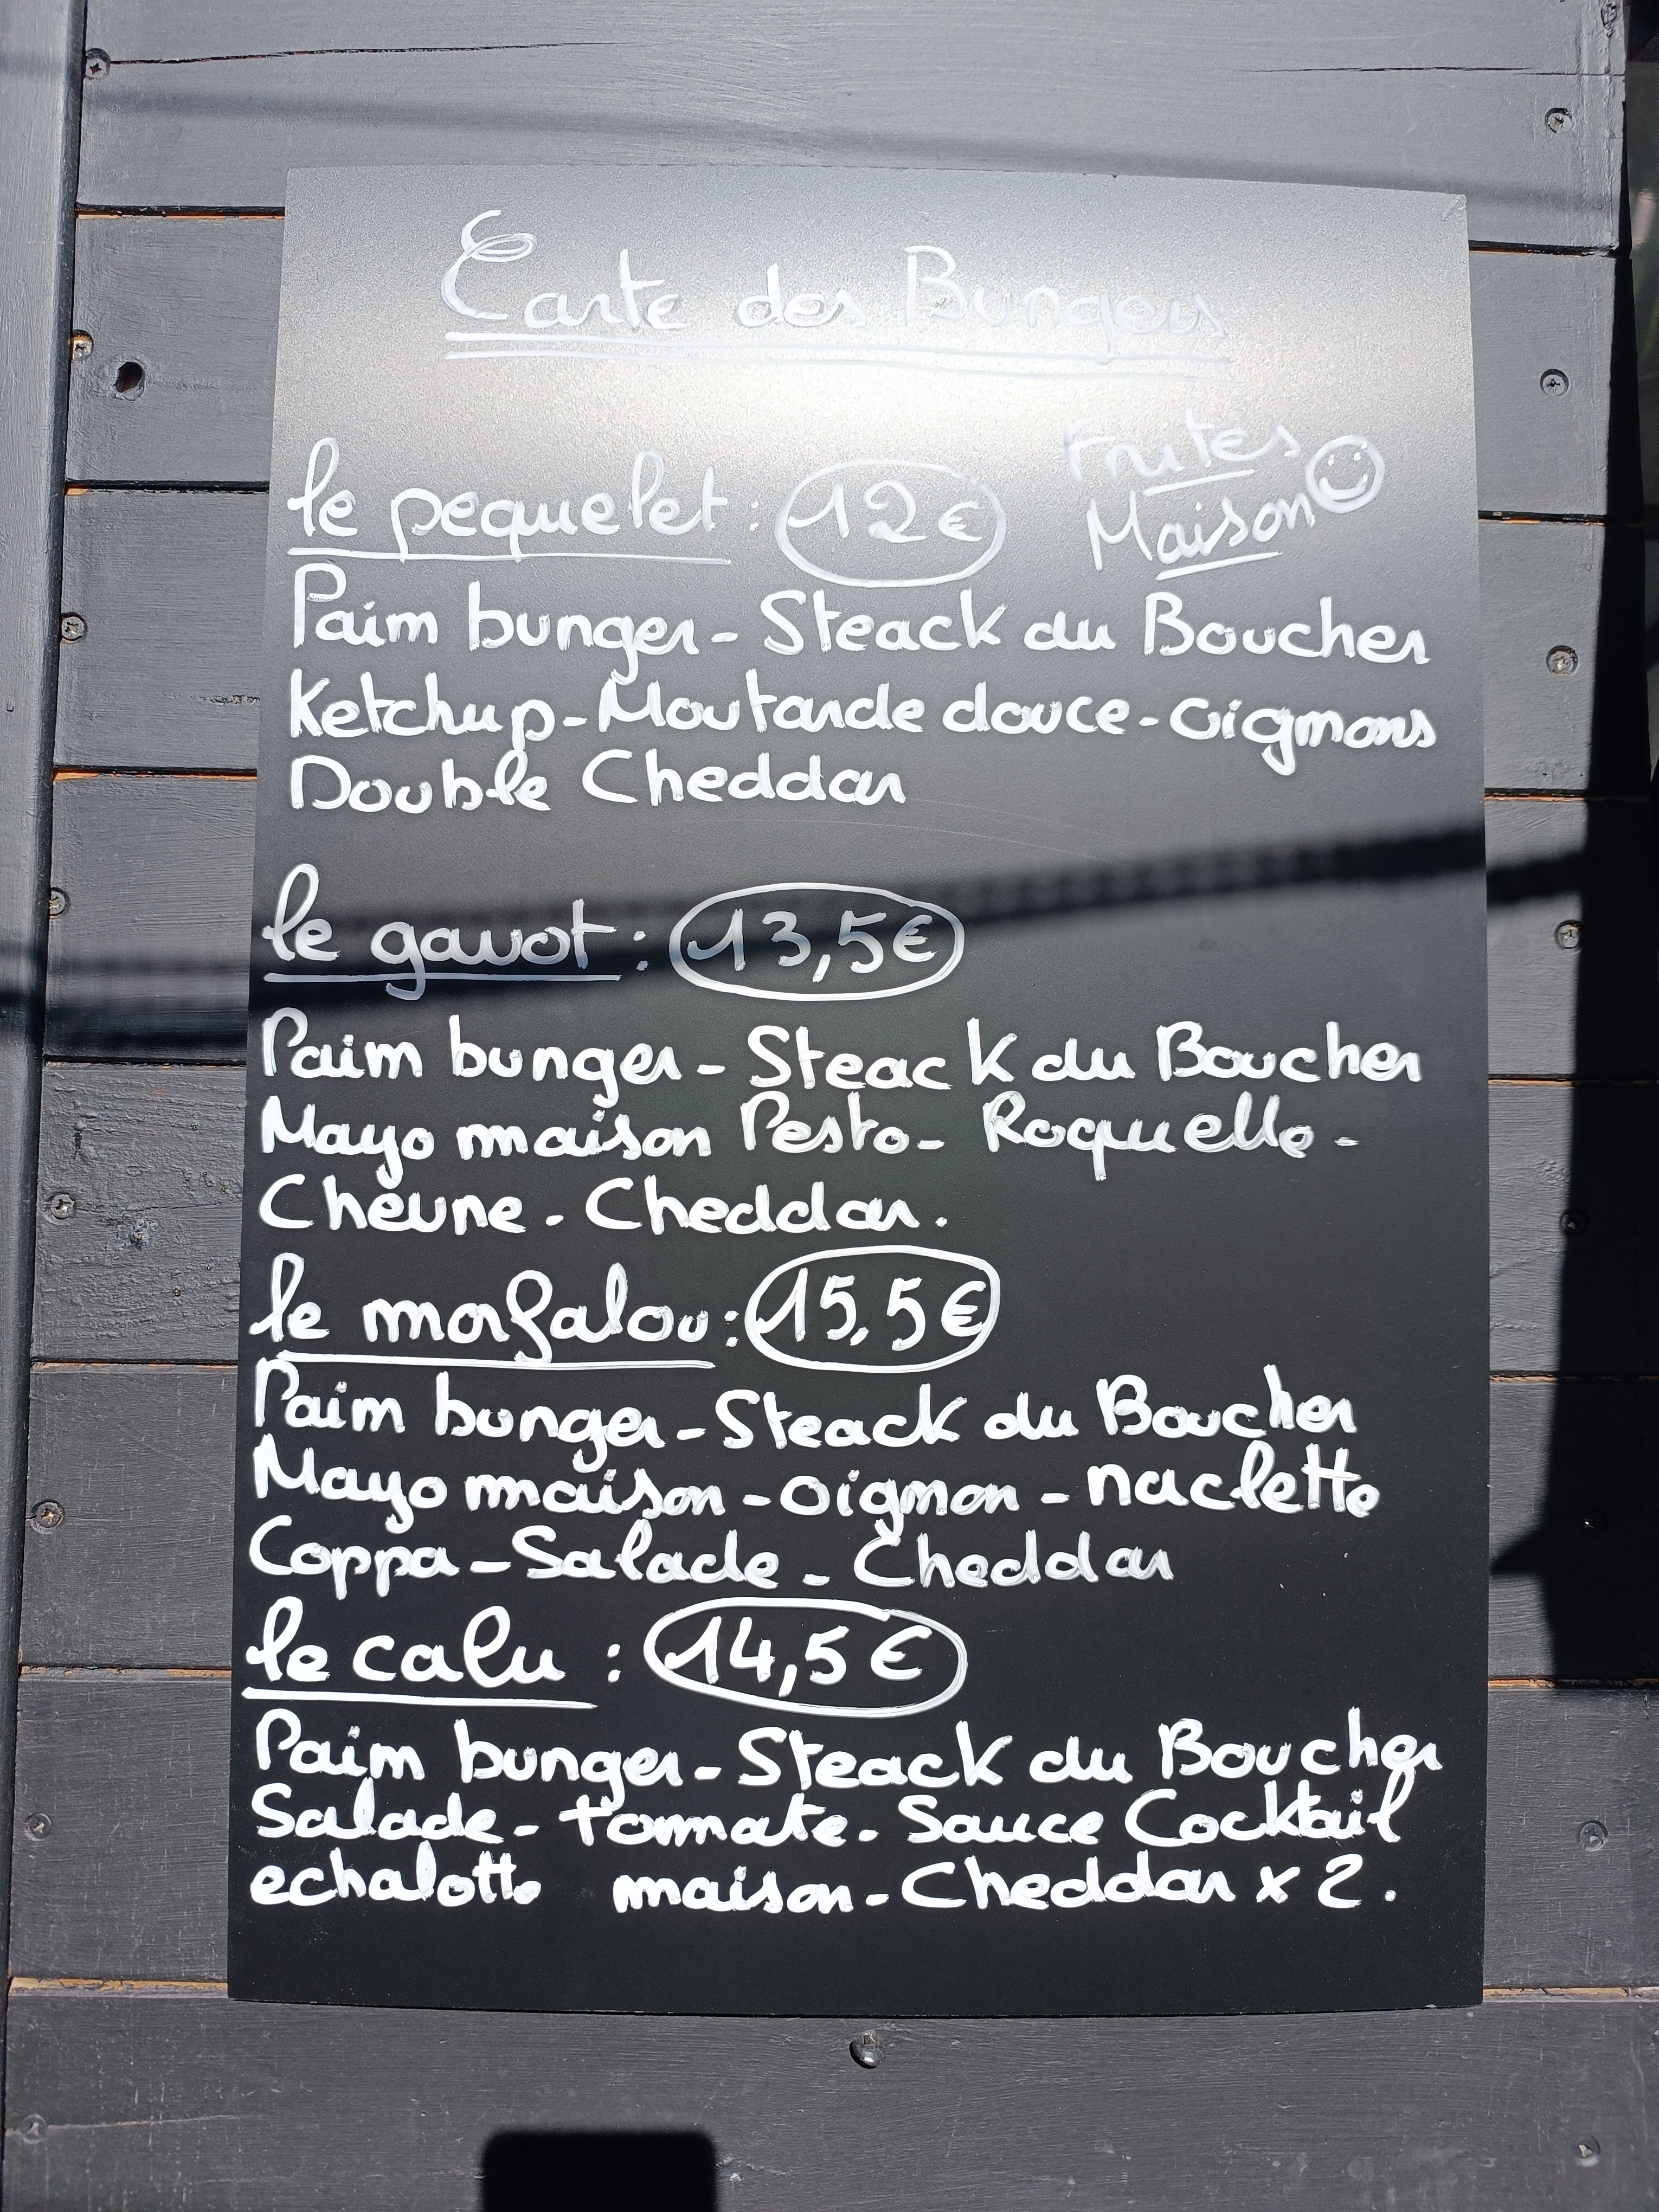 Carte des Burgers
Frites
Maison
le pequelet : 12€
Pain burger - Steack du Boucher
Ketchup - Moutarde douce - oignons
Double Cheddar
le gavot : 13,5€
Pain burger - Steack du Boucher
Mayo maison Pesto - Roquette -
Chevre - Cheddar.
le morfalou : 15,5€
Pain burger - Steack du Boucher
Mayo maison - oignon - raclette
Coppa - Salade - Cheddar
le calu : 14,5€
Pain burger - Steack du Boucher
Salade - tomate - Sauce Cocktail
echalotte maison - Cheddar x 2.